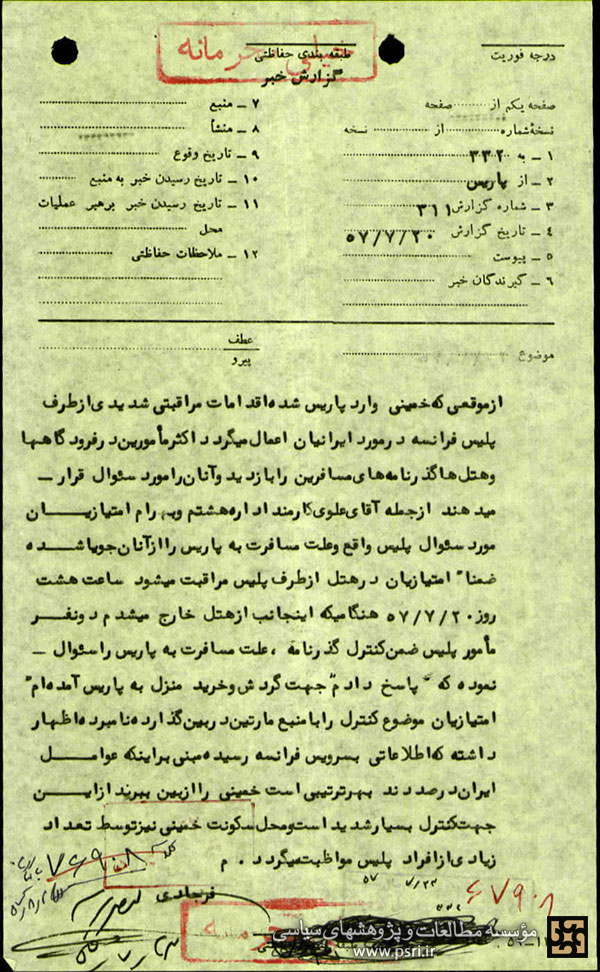 خیلی محرمانه
درجه فوریت
طبقه بندی حفاظتی
گزارش خبر
صفحه یکم از صفحه
نسخه شماره از نسخه
۱ ـ به ۳۳۲
۲ ـ از پاریس
۳ ـ شماره گزارش ۳۱۱
۴ ـ تاریخ گزارش ۵۷/۷/۲۰
۵ ـ پیوست
۶ ـ گیرندگان خبر
۷ ـ منبع
۸ ـ منشأ
۹ ـ تاریخ وقوع
۱۰ ـ تاریخ رسیدن خبر به منبع
۱۱ ـ تاریخ رسیدن خبر برهبر عملیات
محل
۱۲ ـ ملاحظات حفاظتی
موضوع
عطف
پیرو
ازموقعی که خمینی وارد پاریس شده اقدامات مراقبتی شدیدی ازطرف
پلیس فرانسه درمورد ایرانیان اعمال میگردد اکثر مأمورین در فرودگاهها
وهتل ها گذرنامه های مسافرین را بازدید وآنان را مورد سئوال قرار ـ
میدهند ازجمله آقای علوی کارمند اداره هشتم وبهرام امتیازیان
مورد سئوال پلیس واقع وعلت مسافرت به پاریس را ازآنان جویا شده
ضمنا" امتیازیان درهتل ازطرف پلیس مراقبت میشود ساعت هشت
روز ۵۷/۷/۲۰ هنگامیکه اینجانب ازهتل خارج میشدم دونفر
مأمور پلیس ضمن کنترل گذرنامه ، علت مسافرت به پاریس را سئوال ـ
نموده که " پاسخ دادم" جهت گردش وخرید منزل به پاریس آمده ام"
امتیازیان موضوع کنترل را با منبع مارتین دربین گذارده نامبرده اظهار
داشته که اطلاعاتی بسرویس فرانسه رسیده مبنی براینکه عوامل
ایران درصددند بهرترتیبی است خمینی را ازبین ببرند ازاین
جهت کنترل بسیار شدید است ومحل سکونت خمینی نیز توسط تعداد
زیادی ازافراد پلیس مواظبت میگردد . م
فرجادی
۶۷۹۰۸
مؤسسه مطالعات و پژوهشهای سیاسی
www.psri.ir